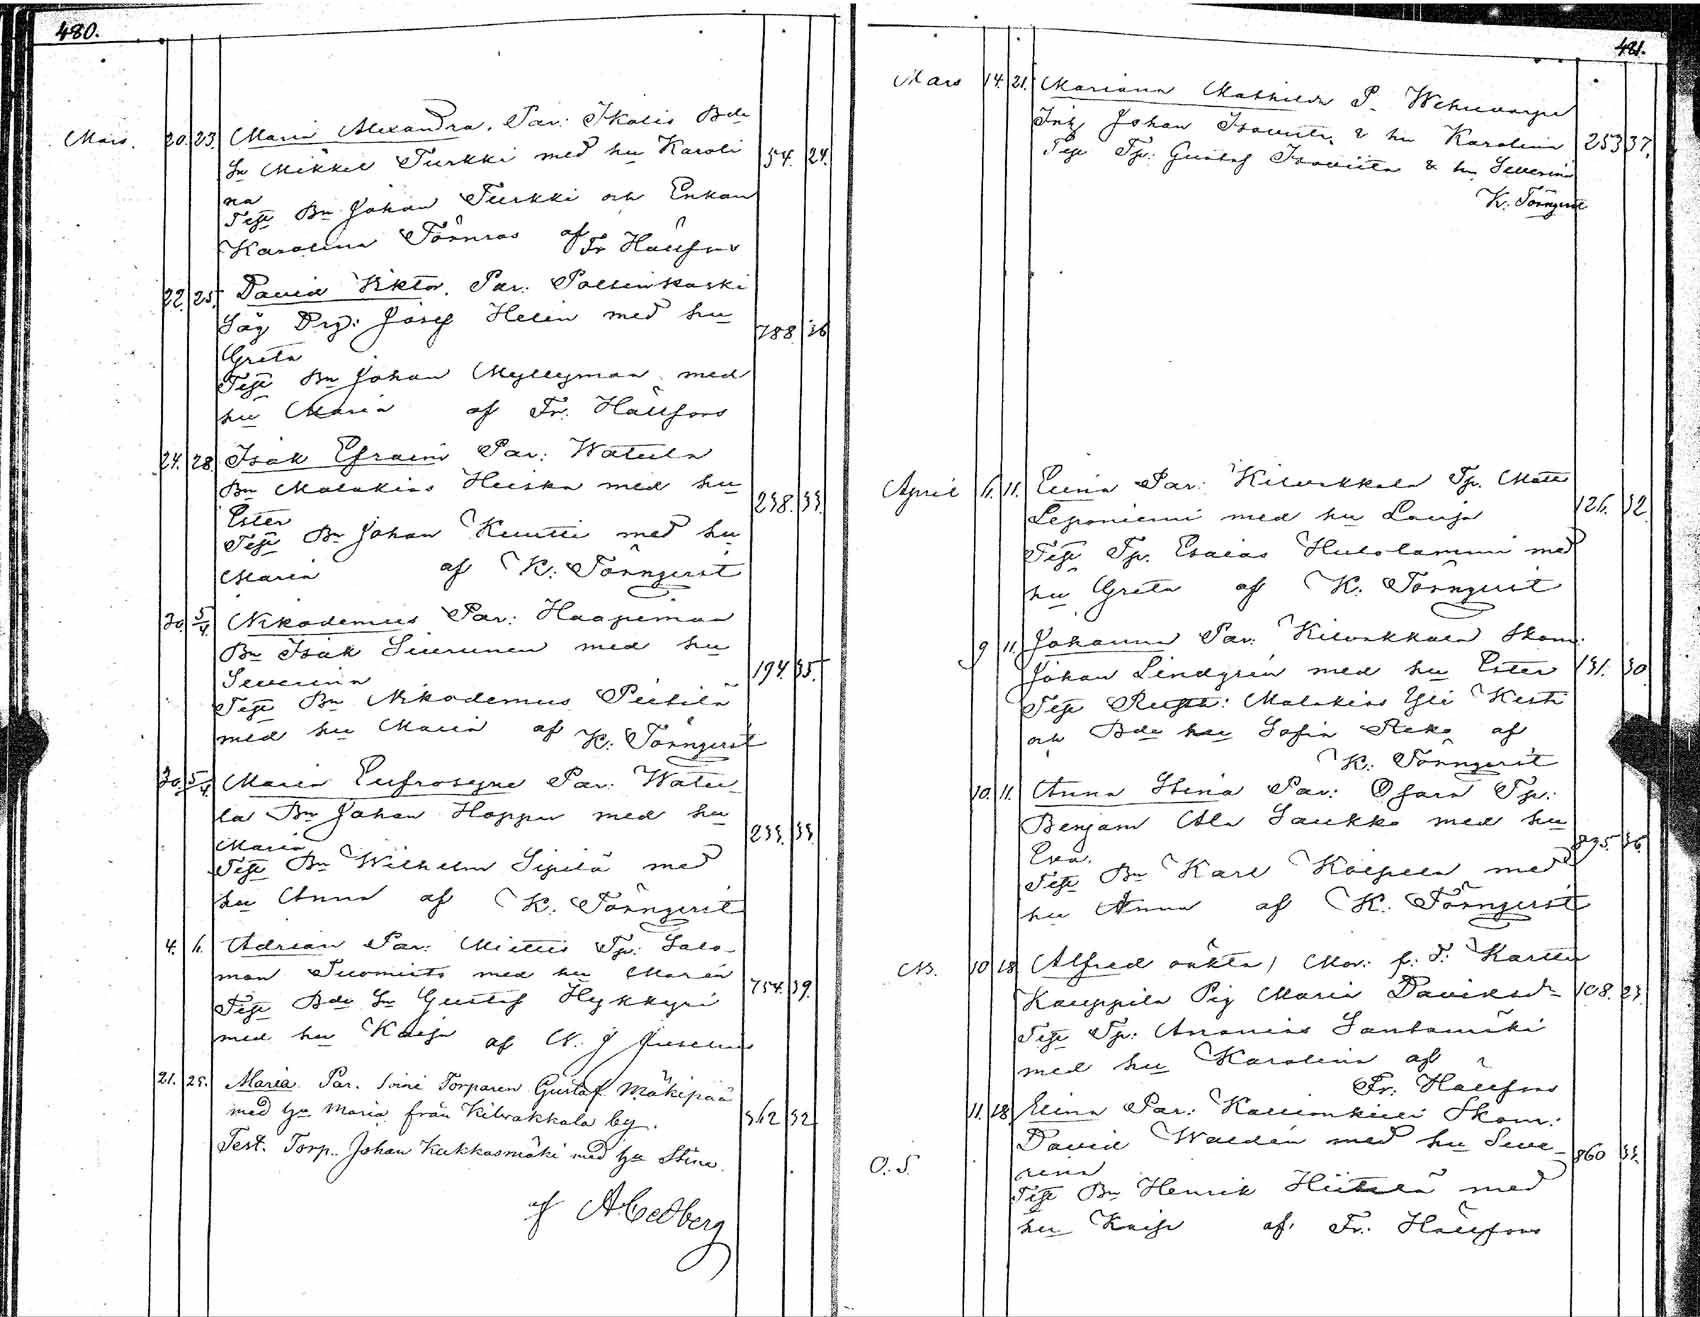 480.
Mars. 20. 23. Maria Alexandra. Par: Ikalis Bde
Sn Mikkel Turkki med hu Karoli 54. 24.
na
Test Bn Johan Turkki och Enkan
Karolina Törnroos af Fr Hällfors
22. 25. David Viktor. Par: Poltinkoski
Såg Drg: Josef Helin med hu 788. 36
Greta
Test Bn Johan Myllyman med
hu Maria af Fr. Hällfors
24. 28. Isak Efraim Par: Watula
Bn Malakias Heiska med hu 238. 33.
Ester
Test Bn Johan Knutti med hu
Maria af K: Törnqvist
30. 5/4. Nikodemus Par: Haapimaa
Bn Isak Siurunen med hu 194. 35.
Severina
Test Bn Nikodemus Pietilä
med hu Maria af K: Törnqvist
30. 5/4. Maria Eufrosyne Par: Watu-
la Bn Johan Hoppu med hu 233. 33.
Maria
Test Bn Wilhelm Sipilä med
hu Anna af K. Törnqvist
4. 6. Adrian Par: Miettis Tp: Salo-
mon Tuomisto med hu Maria 754. 39.
Test Bde Sn Gustaf Hykkyri
med hu Kaisa af N. J Juselius
21. 25. Maria Par. Soini Torparen Gustaf Mäkipää
med hu Maria från Kilvakkala by. 362 32
Test. Torp. Johan Kukkasmäki med hu Stina.
af A Cedberg
481.
Mars 14. 21. Mariana Mathilda P. Wehuvarpe
Inh Johan Isoviita & hu Karolina 253 37.
Test Tp: Gustaf Isoviita & hu Severina
K. Törnqvist
April 6. 11. Eliina Par: Kilvakkala Tp. Matts
Leponiemi med hu Lovisa 126. 32.
Test Tp. Esaias Hulolammi med
hu Greta af K. Törnqvist
9 11. Johanna Par: Kilvakkala Skom:
Johan Lindgrén med hu Ester 131. 30.
Test Rusth: Malakias Yli Kesti
och Bde hu Sofia Reko af
K. Törnqvist
10. 11. Anna Stina Par: Ojara Tp:
Benjam Ala Saukko med hu
Eva. 895. 36.
Test Bn Karl Koipela med
hu Anna af K. Törnqvist
N. 10 18. Alfred oäkta, Mor: f: T: Karttu
Kauppila Pig Maria Davidsdr 108. 23.
Test Tp: Ananias Santamäki
med hu Karolina af
Fr: Hällfors
11. 18. Elina Par: Kallionkieli Skom:
David Waldén med hu Seve- 860 33.
O. S. rina
Test Bn Henrik Hietala med
hu Kaisa af. Fr: Hällfors